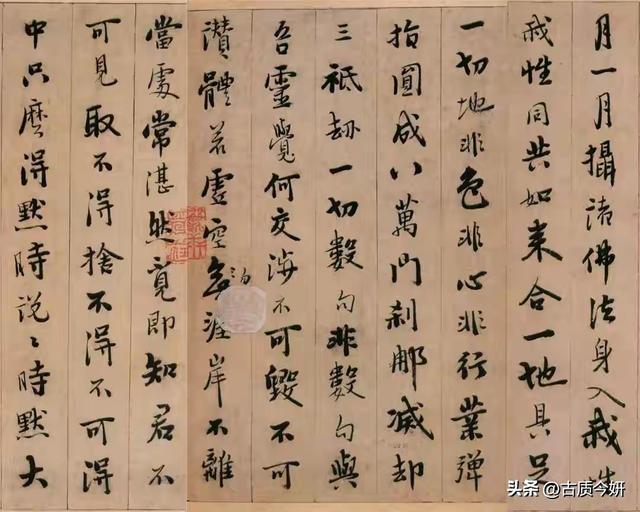 月一月攝諸佛法身入我性
我性同共如來合一地具足
一切地非色非心非行業彈
指圓成八萬門剎那滅却
三祇劫一切數句非數句與
吾靈覺何交涉不可毀不可
讚體若虛空勿涯岸不離
當處常湛然覓即知君不
可見取不得捨不得不可得
中只麼得默時說〻時默大
头条 @古质今妍